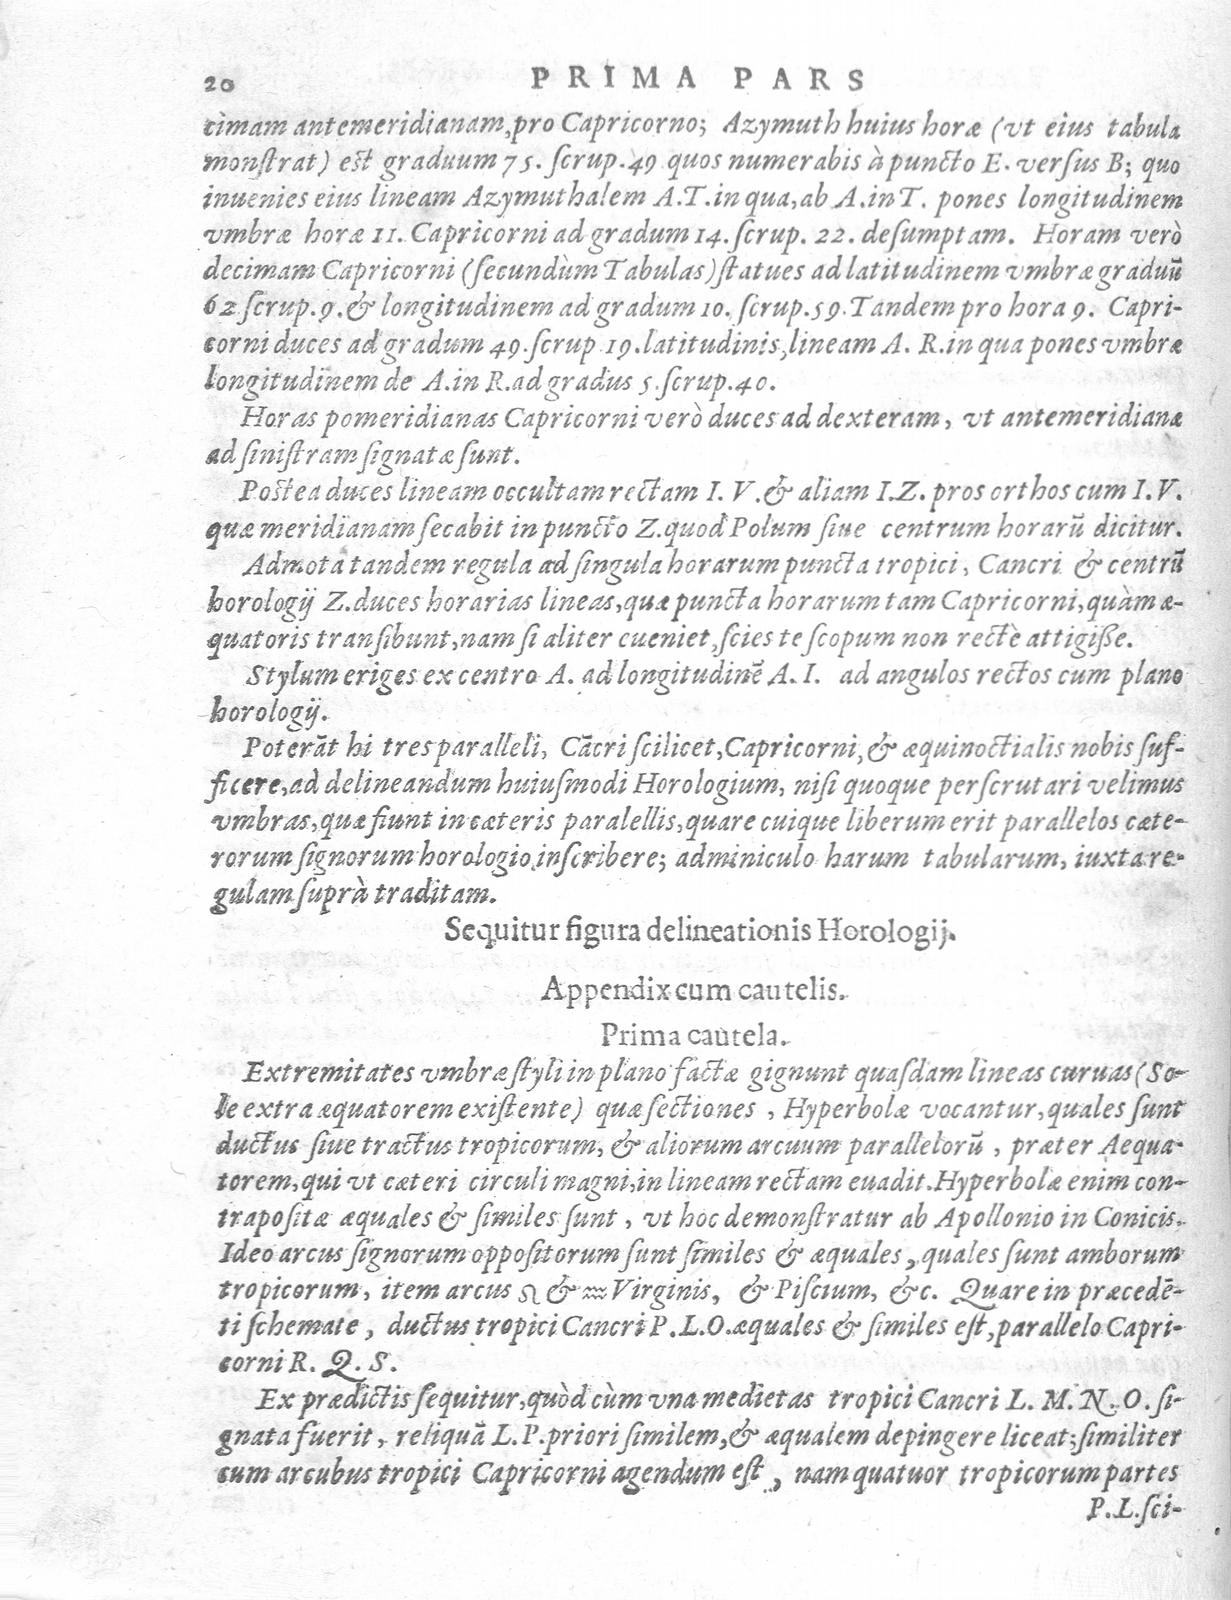 20 PRIMA PARS
cimam antemeridianam, pro Capricorno; Azymuth huius horæ (vt eius tabula
monſtrat) eſt graduum 75. ſcrup. 49 quos numerabis à puncto E. verſus B; quo
inuenies eius lineam Azymuthalem A.T. in qua, ab A. in T. pones longitudinem
vmbræ horæ 11. Capricorni ad gradum 14. ſcrup. 22. deſumptam. Horam verò
decimam Capricorni (ſecundùm Tabulas) ſtatues ad latitudinem vmbræ graduū
62 ſcrup. 9. & longitudinem ad gradum 10. ſcrup. 59. Tandem pro hora 9. Capri-
corni duces ad gradum 49. ſcrup 19. latitudinis, lineam A. R. in qua pones vmbræ
longitudinem de A. in R. ad gradus 5. ſcrup. 40.
Horas pomeridianas Capricorni verò duces ad dexteram, vt antemeridianæ
ad ſiniſtram ſignatæ ſunt.
Poſtea duces lineam occultam rectam I. V. & aliam I.Z. pros orthos cum I.V.
quæ meridianam ſecabit in puncto Z. quod Polum ſiue centrum horarū dicitur.
Admota tandem regula ad ſingula horarum puncta tropici, Cancri & centrū
horologij Z. duces horarias lineas, quæ puncta horarum tam Capricorni, quàm æ-
quatoris tranſibunt, nam ſi aliter eueniet, ſcies te ſcopum non rectè attigiſſe.
Stylum eriges ex centro A. ad longitudinē A. I. ad angulos rectos cum plano
horologij.
Poterāt hi tres paralleli, Cācri ſcilicet, Capricorni, & æquinoctialis nobis ſuf-
ficere, ad delineandum huiuſmodi Horologium, niſi quoque perſcrutari velimus
vmbras, quæ fiunt in cæteris paralellis, quare cuique liberum erit parallelos cæte-
rorum ſignorum horologio inſcribere; adminiculo harum tabularum, iuxta re-
gulam ſuprà traditam.
Sequitur figura delineationis Horologij.
Appendix cum cautelis.
Prima cautela.
Extremitates vmbræ ſtyli in plano factæ gignunt quaſdam lineas curuas (So-
le extra æquatorem exiſtente) quæ ſectiones, Hyperbolæ vocantur, quales ſunt
ductus ſiue tractus tropicorum, & aliorum arcuum parallelorū, præter Aequa-
torem, qui vt cæteri circuli magni, in lineam rectam euadit. Hyperbolæ enim con-
trapoſitæ æquales & ſimiles ſunt, vt hoc demonſtratur ab Apollonio in Conicis.
Ideo arcus ſignorum oppoſitorum ſunt ſimiles & æquales, quales ſunt amborum
tropicorum, item arcus ♌ & ♒ Virginis, & Piſcium, &c. Quare in præcedē-
ti ſchemate, ductus tropici Cancri P. L. O. æquales & ſimiles eſt, parallelo Capri-
corni R. Q. S.
Ex prædictis ſequitur, quòd cùm vna medietas tropici Cancri L. M. N. O. ſi-
gnata fuerit, reliquā L.P. priori ſimilem, & æqualem depingere liceat; ſimiliter
cum arcubus tropici Capricorni agendum eſt, nam quatuor tropicorum partes
P. L. ſci-